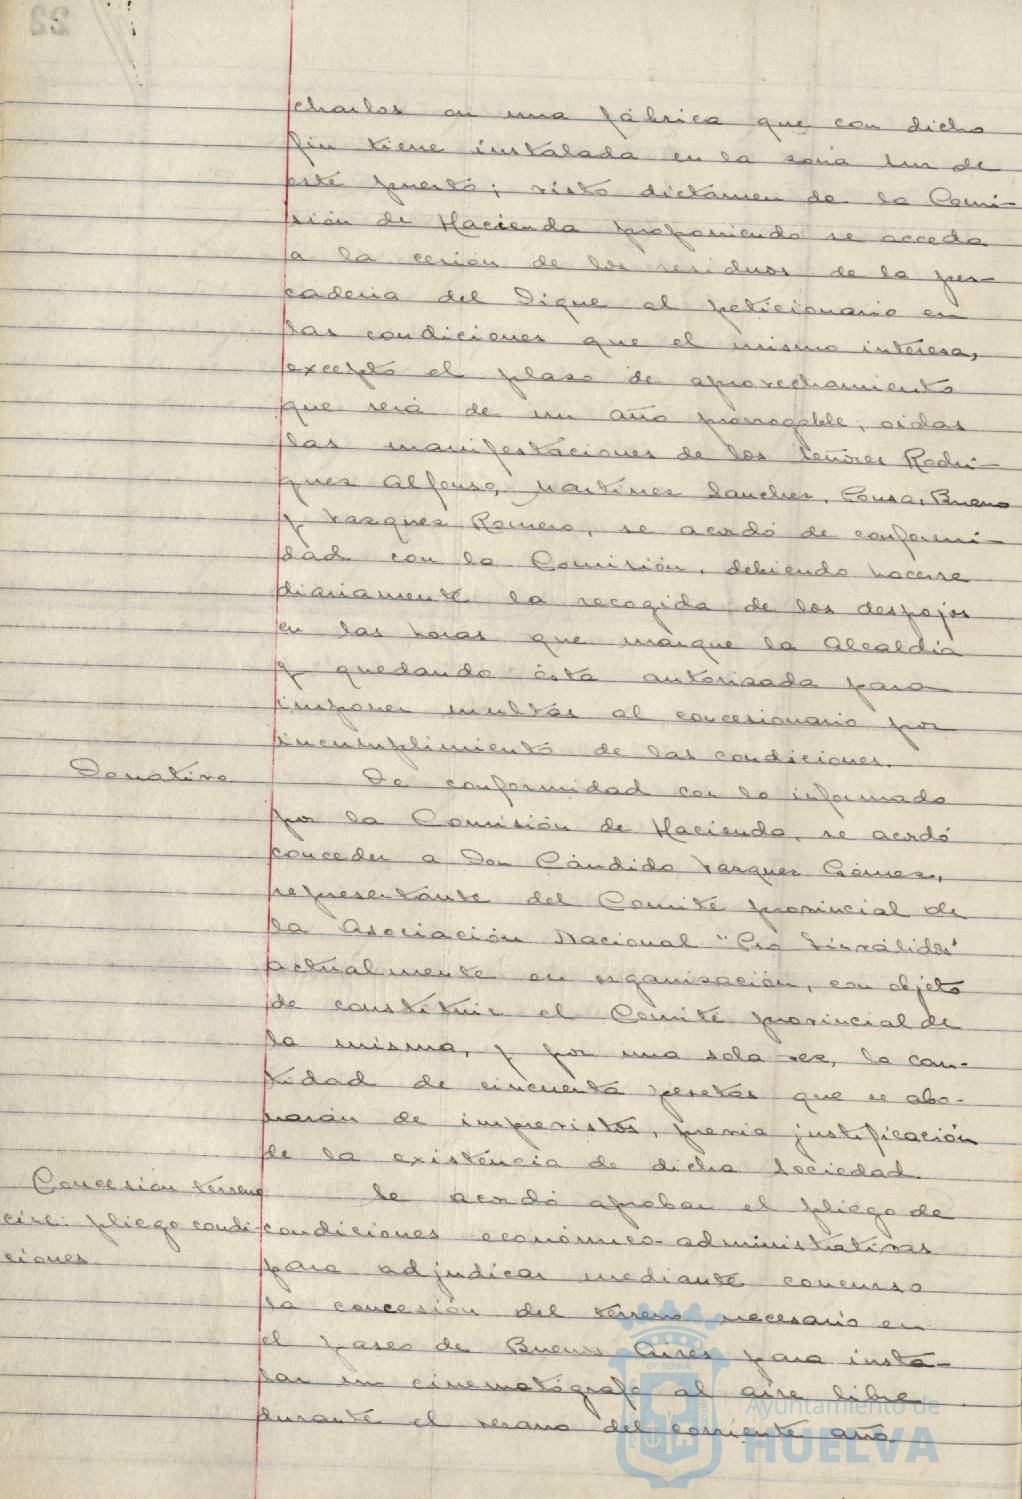 charlos en una fábrica que con dicho
fin tiene instalada en la zona Sur de
este puerto; visto dictamen de la Comi-
sión de Hacienda proponiendo se acceda
a la cesión de los residuos de la pes-
caderia del Dique al peticionario en
las condiciones que el mismo interesa,
excepto el plazo de aprovechamiento
que será de un año prorrogable; oidas
las manifestaciones de los Señores Rodri-
guez Alfonso, Martinez Sanchez, Bueno
y Vazquez Romero, se acordó de conformi-
dad con la Comisión, debiendo hacerse
diariamente la recogida de los despojos
en las horas que marque la Alcaldia
y quedando ésta autorizada para
imponer multas al concesionario por
incumplimiento de las condiciones.
Donativo
De conformidad con lo informado
por la Comisión de Hacienda, se acordó
conceder a Don Cándido Vazquez Gómez,
representante del Comité provincial de
la Asociación Nacional "Pro Inválidos"
actualmente en organización, con objeto
de constituir el Comité provincial de
la misma, y por una sola vez, la can-
tidad de cincuenta pesetas que se abo-
narán de imprevistos, previa justificación
de la existencia de dicha Sociedad.
Concesión terreno
cine: pliego condi-
ciones.
Se acordó aprobar el pliego de
condiciones económico-administrativas
para adjudicar mediante concurso
la concesión del terreno necesario en
el paseo de Buenos Aires para insta-
lar un cinematógrafo al aire libre
durante el verano del corriente año
Ayuntamiento de
HUELVA